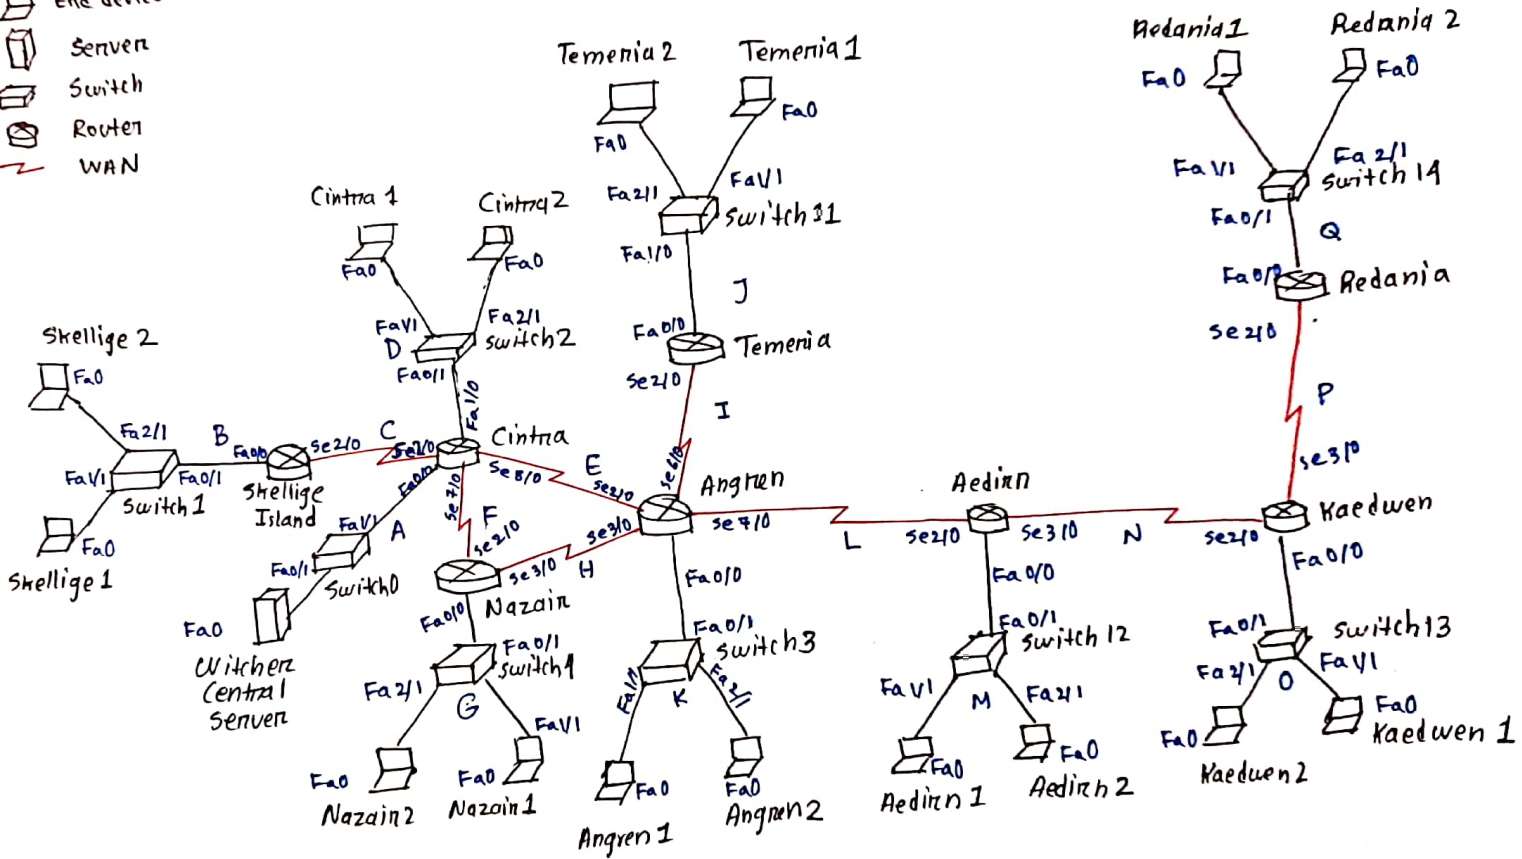 End device
Server
Switch
Router
WAN
Temeria 2
Temeria 1
Fa0
Fa0
Fa2/1
Fa1/1
Switch 11
Fa1/0
J
Fa0/0
Temeria
Se2/0
I
Se6/0
Redania 1
Redania 2
Fa0
Fa0
Fa1/1
Fa2/1
Switch 14
Fa0/1
Q
Fa0/0
Redania
Se2/0
P
Se3/0
Cintra 1
Cintra 2
Fa0
Fa0
Fa1/1
Fa2/1
D
Switch2
Fa0/1
Fa1/0
Cintra
Skellige 2
Fa0
Fa2/1
B
Fa0/0
Se2/0
C
Fa1/1
Fa0/1
Switch 1
Skellige
Island
Fa0
Skellige 1
Fa0/0
Se7/0
Se8/0
E
Se2/0
Fa1/1
A
F
Se2/0
Fa0/1
Switch0
Fa0
Witcher
Central
Server
Se3/0
H
Se3/0
Nazair
Fa0/0
Fa0/1
Switch4
Fa2/1
G
Fa1/1
Fa0
Fa0
Nazair2
Nazair1
Angren
Se7/0
L
Fa0/0
Fa0/1
Switch3
Fa1/1
K
Fa2/1
Fa0
Fa0
Angren 1
Angren 2
Aedirn
Se2/0
Se3/0
N
Fa0/0
Fa0/1
Switch 12
Fa1/1
M
Fa2/1
Fa0
Fa0
Aedirn 1
Aedirn 2
Kaedwen
Se2/0
Fa0/0
Fa0/1
Switch13
Fa2/1
O
Fa1/1
Fa0
Fa0
Kaedwen 1
Kaedwen 2